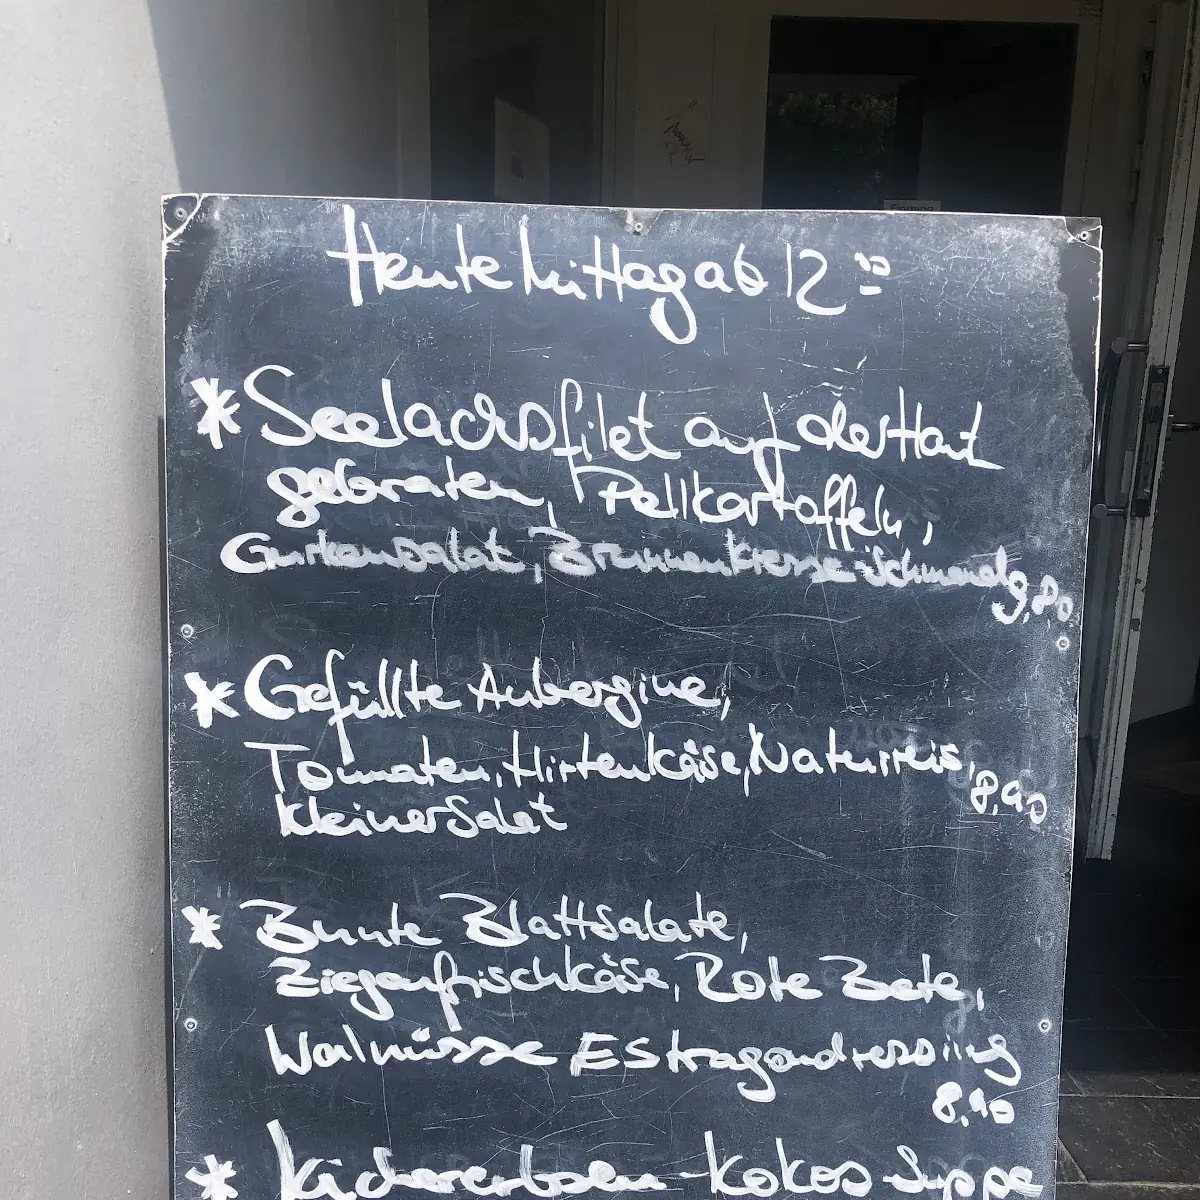 Eingang
Heute Mittag ab 12 00
* Seelachsfilet auf der Haut
gebraten, Pellkartoffeln,
Gurkensalat, Brunnenkresse-Schmand 9,80
* Gefüllte Aubergine,
Tomaten, Hirtenkäse, Naturreis,
kleiner Salat 8,90
* Bunte Blattsalate,
Ziegenfrischkäse, Rote Bete,
Walnüsse Estragondressing
8,90
* Kichererbsen-Kokos-Suppe